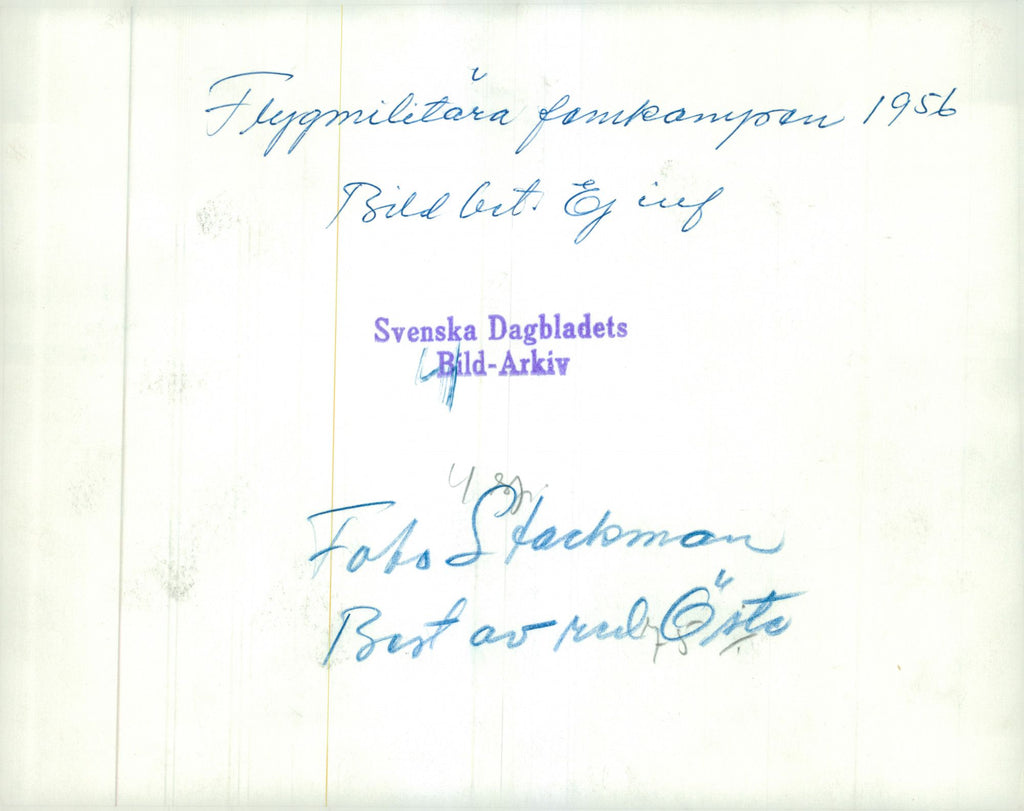 Flygmilitära femkampen 1956
Bild bet. Ej inf
Svenska Dagbladets
Bild-Arkiv
4 sp.
Foto Stackman
Best av red Öste
75